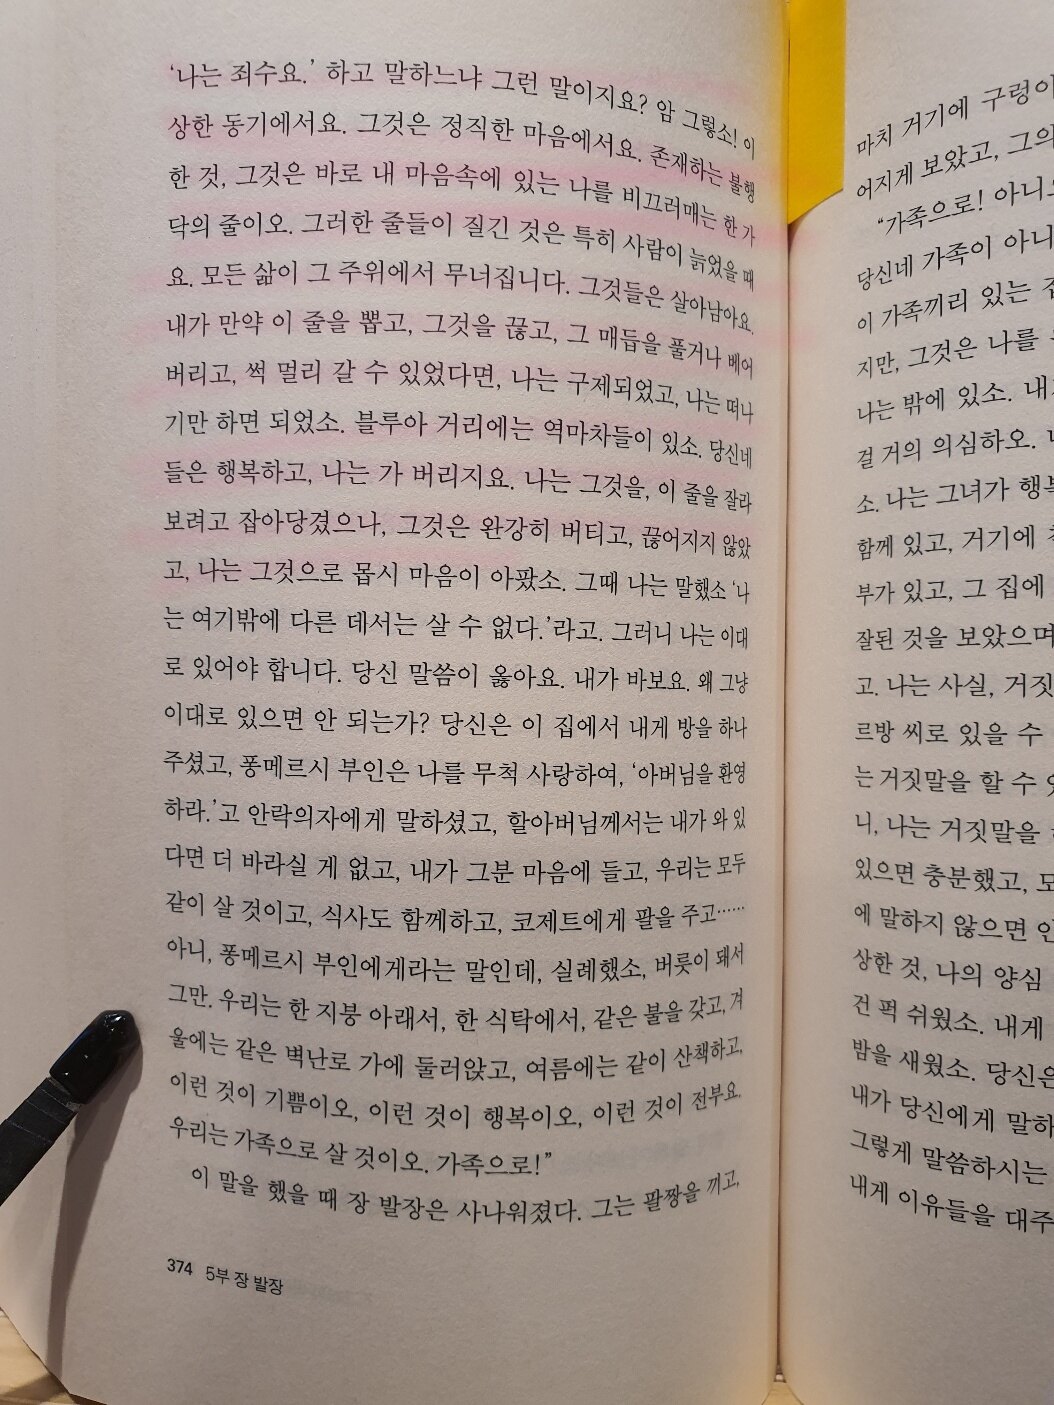 ‘나는 죄수요.’ 하고 말하느냐 그런 말이지요? 암 그렇소! 이
상한 동기에서요. 그것은 정직한 마음에서요. 존재하는 불행
한 것, 그것은 바로 내 마음속에 있는 나를 비끄러매는 한 가
닥의 줄이오. 그러한 줄들이 질긴 것은 특히 사람이 늙었을 때
요. 모든 삶이 그 주위에서 무너집니다. 그것들은 살아남아요.
내가 만약 이 줄을 뽑고, 그것을 끊고, 그 매듭을 풀거나 베어
버리고, 썩 멀리 갈 수 있었다면, 나는 구제되었고, 나는 떠나
기만 하면 되었소. 블루아 거리에는 역마차들이 있소. 당신네
들은 행복하고, 나는 가 버리지요. 나는 그것을, 이 줄을 잘라
보려고 잡아당겼으나, 그것은 완강히 버티고, 끊어지지 않았
고, 나는 그것으로 몹시 마음이 아팠소. 그때 나는 말했소 ‘나
는 여기밖에 다른 데서는 살 수 없다.’라고. 그러니 나는 이대
로 있어야 합니다. 당신 말씀이 옳아요. 내가 바보요. 왜 그냥
이대로 있으면 안 되는가? 당신은 이 집에서 내게 방을 하나
주셨고, 퐁메르시 부인은 나를 무척 사랑하여, ‘아버님을 환영
하라.’고 안락의자에게 말하셨고, 할아버님께서는 내가 와 있
다면 더 바라실 게 없고, 내가 그분 마음에 들고, 우리는 모두
같이 살 것이고, 식사도 함께하고, 코제트에게 팔을 주고……
아니, 퐁메르시 부인에게라는 말인데, 실례했소, 버릇이 돼서
그만. 우리는 한 지붕 아래서, 한 식탁에서, 같은 불을 갖고, 겨
울에는 같은 벽난로 가에 둘러앉고, 여름에는 같이 산책하고,
이런 것이 기쁨이오, 이런 것이 행복이오, 이런 것이 전부요.
우리는 가족으로 살 것이오. 가족으로!”
이 말을 했을 때 장 발장은 사나워졌다. 그는 팔짱을 끼고,
374 5부 장 발장
마치 거기에 구렁이
어지게 보았고, 그의
“가족으로! 아니오
당신네 가족이 아니
이 가족끼리 있는
지만, 그것은 나를
나는 밖에 있소.
걸 거의 의심하오.
소. 나는 그녀가 행복
함께 있고, 거기에
부가 있고, 그 집에
잘된 것을 보았으며
고. 나는 사실, 거짓
르방 씨로 있을 수
는 거짓말을 할 수
니, 나는 거짓말을
있으면 충분했고,
에 말하지 않으면
상한 것, 나의 양심
건 퍽 쉬웠소. 내게
밤을 새웠소. 당신은
내가 당신에게 말하
그렇게 말씀하시는
내게 이유들을 대주